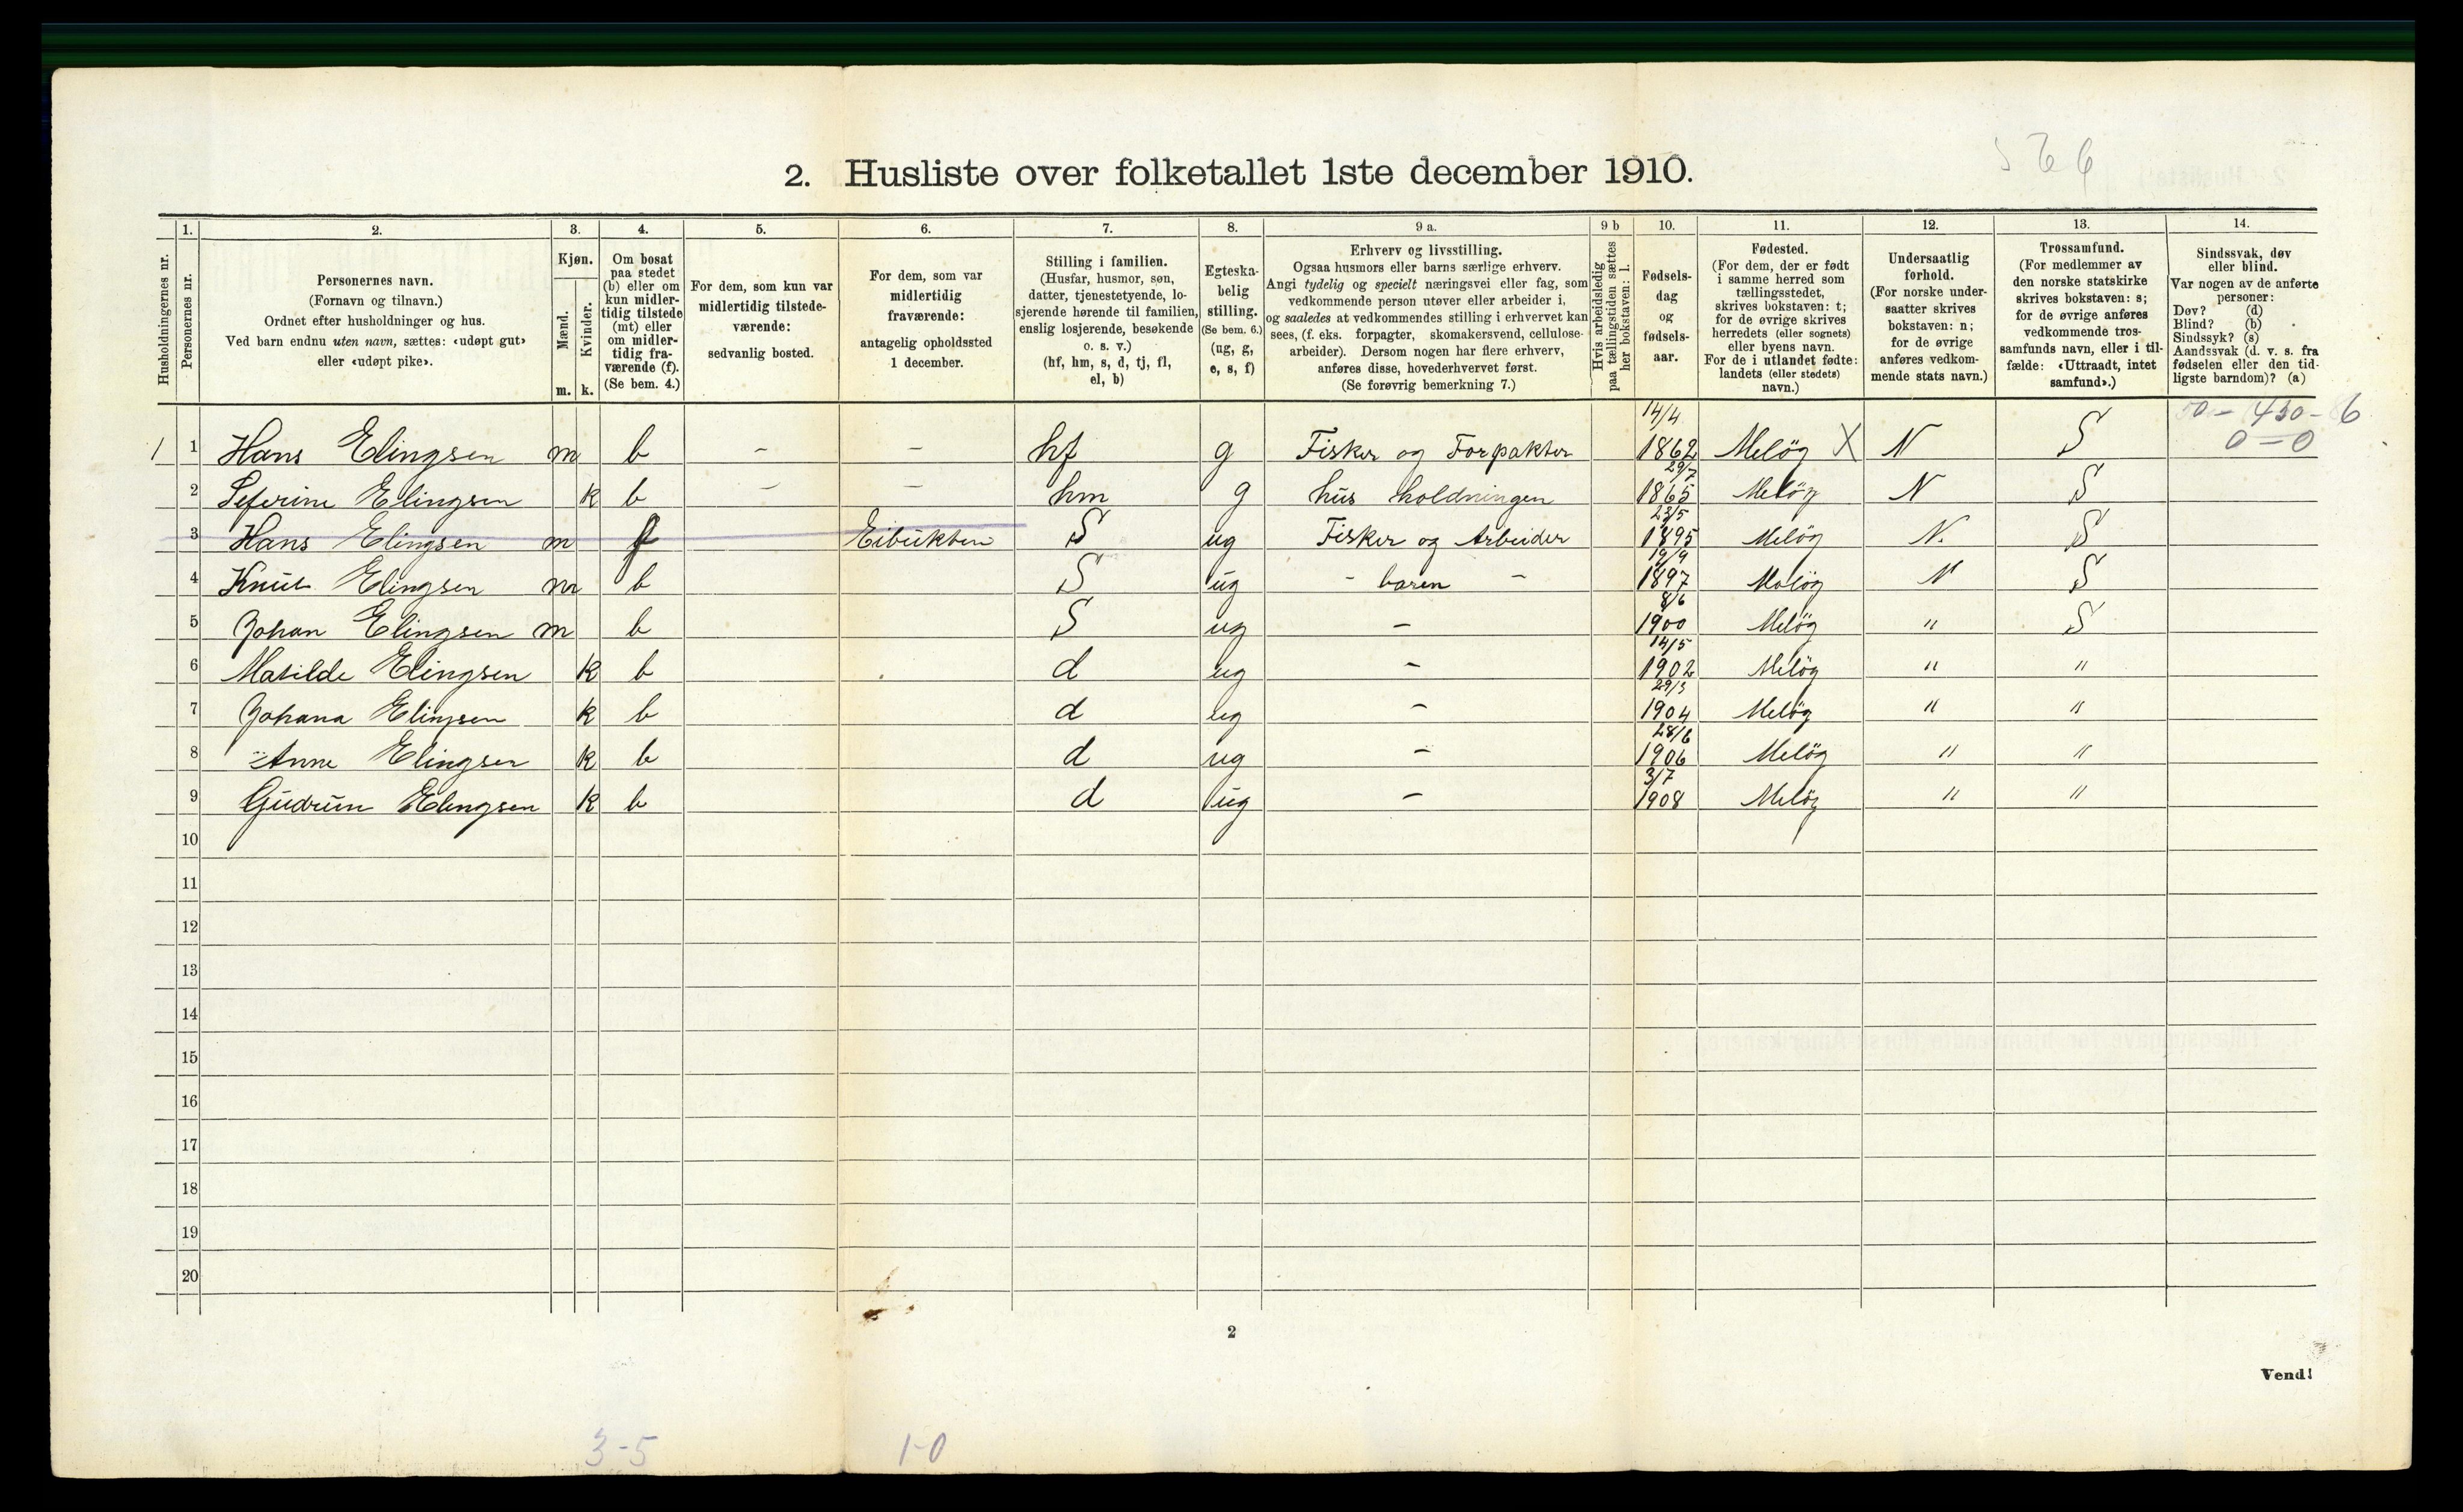 566
2. Husliste over folketallet 1ste december 1910.
Husholdningernes nr.
1.
Personernes nr.
2.
Personernes navn.
(Fornavn og tilnavn.)
Ordnet efter husholdninger og hus.
Ved barn endnu uten navn, sættes: «udøpt gut»
eller «udøpt pike».
3.
Kjøn.
Mænd.
Kvinder.
m. k.
4.
Om bosat
paa stedet
(b) eller om
kun midler-
tidig tilstede
(mt) eller
om midler-
tidig fra-
værende (f).
(Se bem. 4.)
5.
For dem, som kun var
midlertidig tilstede-
værende:
sedvanlig bosted.
6.
For dem, som var
midlertidig
fraværende:
antagelig opholdssted
1 december.
7.
Stilling i familien.
(Husfar, husmor, søn,
datter, tjenestetyende, lo-
sjerende hørende til familien,
enslig losjerende, besøkende
o. s. v.)
(hf, hm, s, d, tj, fl,
el, b)
8.
Egteska-
belig
stilling.
(Se bem. 6.)
(ug, g,
e, s, f)
9 a.
Erhverv og livsstilling.
Ogsaa husmors eller barns særlige erhverv.
Angi tydelig og specielt næringsvei eller fag, som
vedkommende person utøver eller arbeider i,
og saaledes at vedkommendes stilling i erhvervet kan
sees, (f. eks. forpagter, skomakersvend, cellulose-
arbeider). Dersom nogen har flere erhverv,
anføres disse, hovederhvervet først.
(Se forøvrig bemerkning 7.)
9 b
Hvis arbeidsledig
paa tællingstiden sættes
her bokstaven: l.
10.
Fødsels-
dag
og
fødsels-
aar.
11.
Fødested.
(For dem, der er født
i samme herred som
tællingsstedet,
skrives bokstaven: t;
for de øvrige skrives
herredets (eller sognets)
eller byens navn.
For de i utlandet fødte:
landets (eller stedets)
navn.)
12.
Undersaatlig
forhold.
(For norske under-
saatter skrives
bokstaven: n;
for de øvrige
anføres vedkom-
mende stats navn.)
13.
Trossamfund.
(For medlemmer av
den norske statskirke
skrives bokstaven: s;
for de øvrige anføres
vedkommende tros-
samfunds navn, eller i til-
fælde: «Uttraadt, intet
samfund».)
14.
Sindssvak, døv
eller blind.
Var nogen av de anførte
personer:
Døv? (d)
Blind? (b)
Sindssyk? (s)
Aandssvak (d. v. s. fra
fødselen eller den tid-
ligste barndom)? (a)
0 = 0
1 1 Hans Elingsen m b - - hf g Fisker og Forpakter 14/4 1862 Meløy X N S
2 Seferine Elingsen k b - - hm g hus holdningen 29/7 1865 Meløy N S
3 Hans Elingsen m f Eibukten S ug Fisker og Arbeider 23/5 1895 Meløy N. S
4 Knut Elingsen m b S ug - baren - 19/9 1897 Meløy N S
5 Johan Elingsen m b S ug - 8/6 1900 Meløy " S
6 Matilde Elingsen k b d ug - 14/5 1902 Meløy " "
7 Johana Elingsen k b d ug - 29/3 1904 Meløy " "
8 Anne Elingsen k b d ug - 28/6 1906 Meløy " "
9 Gudrun Elingsen k b d ug - 3/7 1908 Meløy " "
10
11
12
13
14
15
16
17
18
19
20
2
Vend!
3-5 1-0